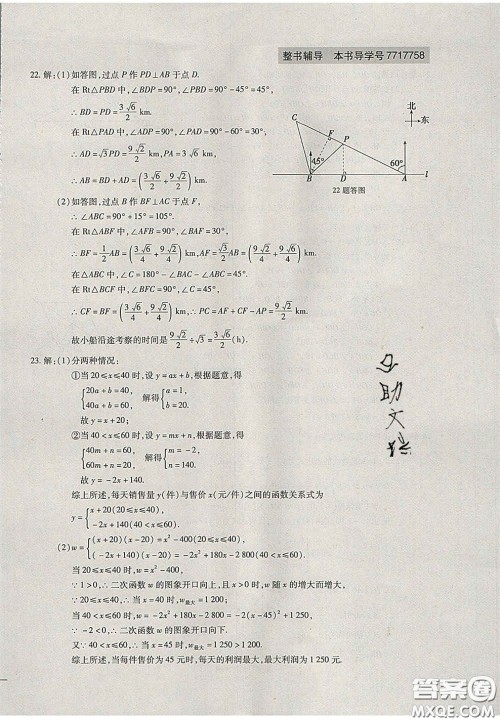 整书辅导 本书导学号7717758
22.解:(1)如答图,过点P作PD⊥AB于点D.
在Rt△PBD中,∠BDP=90°,∠PBD=90°-45°=45°,
∴BD=PD=3√6/2 km.
在Rt△PAD中,∠ADP=90°,∠PAD=90°-60°=30°,
∴AD=√3PD=9√2/2 km,PA=3√6 km.
∴AB=BD+AD=(3√6/2+9√2/2)km.
(2)如答图,过点B作BF⊥AC于点F,
∠ABC=90°+15°=105°.
在Rt△ABF中,∠AFB=90°,∠BAF=30°,
∴BF=1/2AB=(3√6/4+9√2/4)km,AF=√3/2AB=(9√2/4+9√6/4)km.
在△ABC中,∠C=180°-∠BAC-∠ABC=45°.
在Rt△BCF中,∠BFC=90°,∠C=45°,
∴CF=BF=(3√6/4+9√2/4)km,∴PC=AF+CF-AP=9√2/2 km.
故小船沿途考察的时间是9√2/2÷√3=3√6/2(h).
北
东
C
F
P
45°
60°
B
D
A
l
22题答图
23.解:(1)分两种情况:
①当20≤x≤40时,设y=ax+b,根据题意,得
{20a+b=40, 40a+b=60, 解得{a=1, b=20.
故y=x+20;
②当40<x≤60时,设y=mx+n,根据题意,得
{40m+n=60, 60m+n=20, 解得{m=-2, n=140.
故y=-2x+140.
综上所述,每天销售量y(件)与售价x(元/件)之间的函数关系式为
y={x+20(20≤x≤40), -2x+140(40<x≤60).
(2)w={(x+20)(x-20)=x²-400(20≤x≤40), (-2x+140)(x-20)=-2x²+180x-2800(40<x≤60).
当20≤x≤40时,w=x²-400,
∵1>0,∴二次函数w的图象开口向上,且w随x的增大而增大.
∵20≤x≤40,∴当x=40时,w最大=1200;
当40<x≤60时,w=-2x²+180x-2800=-2(x-45)²+1250,
∵-2<0,∴二次函数w的图象开口向下.
又∵40<x≤60,∴当x=45时,w最大=1250>1200.
综上所述,当每件售价为45元时,每天的利润最大,最大利润为1250元.
答案圈
MXQE.COM